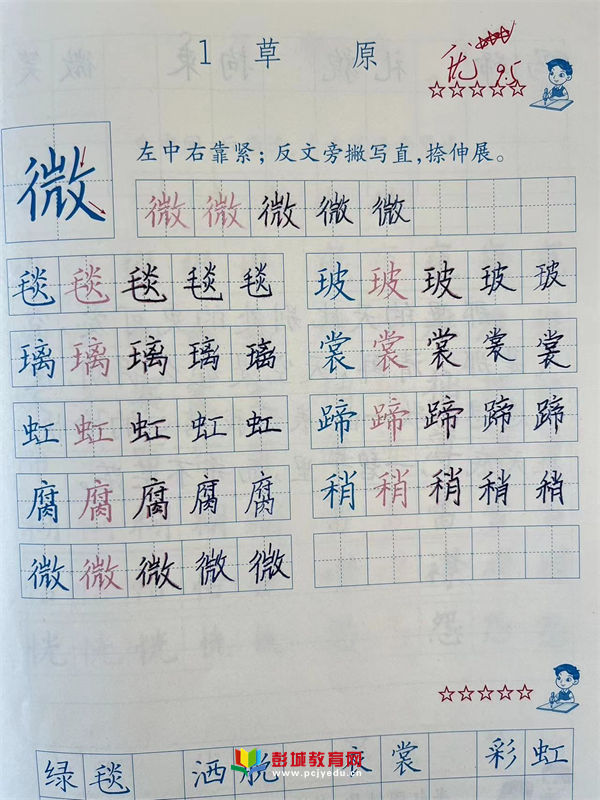 1 草 原
优 9.5
微
左中右靠紧；反文旁撇写直，捺伸展。
微 微 微 微 微
毯 毯 毯 毯 毯
玻 玻 玻 玻 玻
璃 璃 璃 璃 璃
裳 裳 裳 裳 裳
虹 虹 虹 虹 虹
蹄 蹄 蹄 蹄 蹄
腐 腐 腐 腐 腐
稍 稍 稍 稍 稍
微 微 微 微 微
绿 毯 洒 脱 衣 裳 彩 虹
彭城教育网
www.pcjyedu.cn